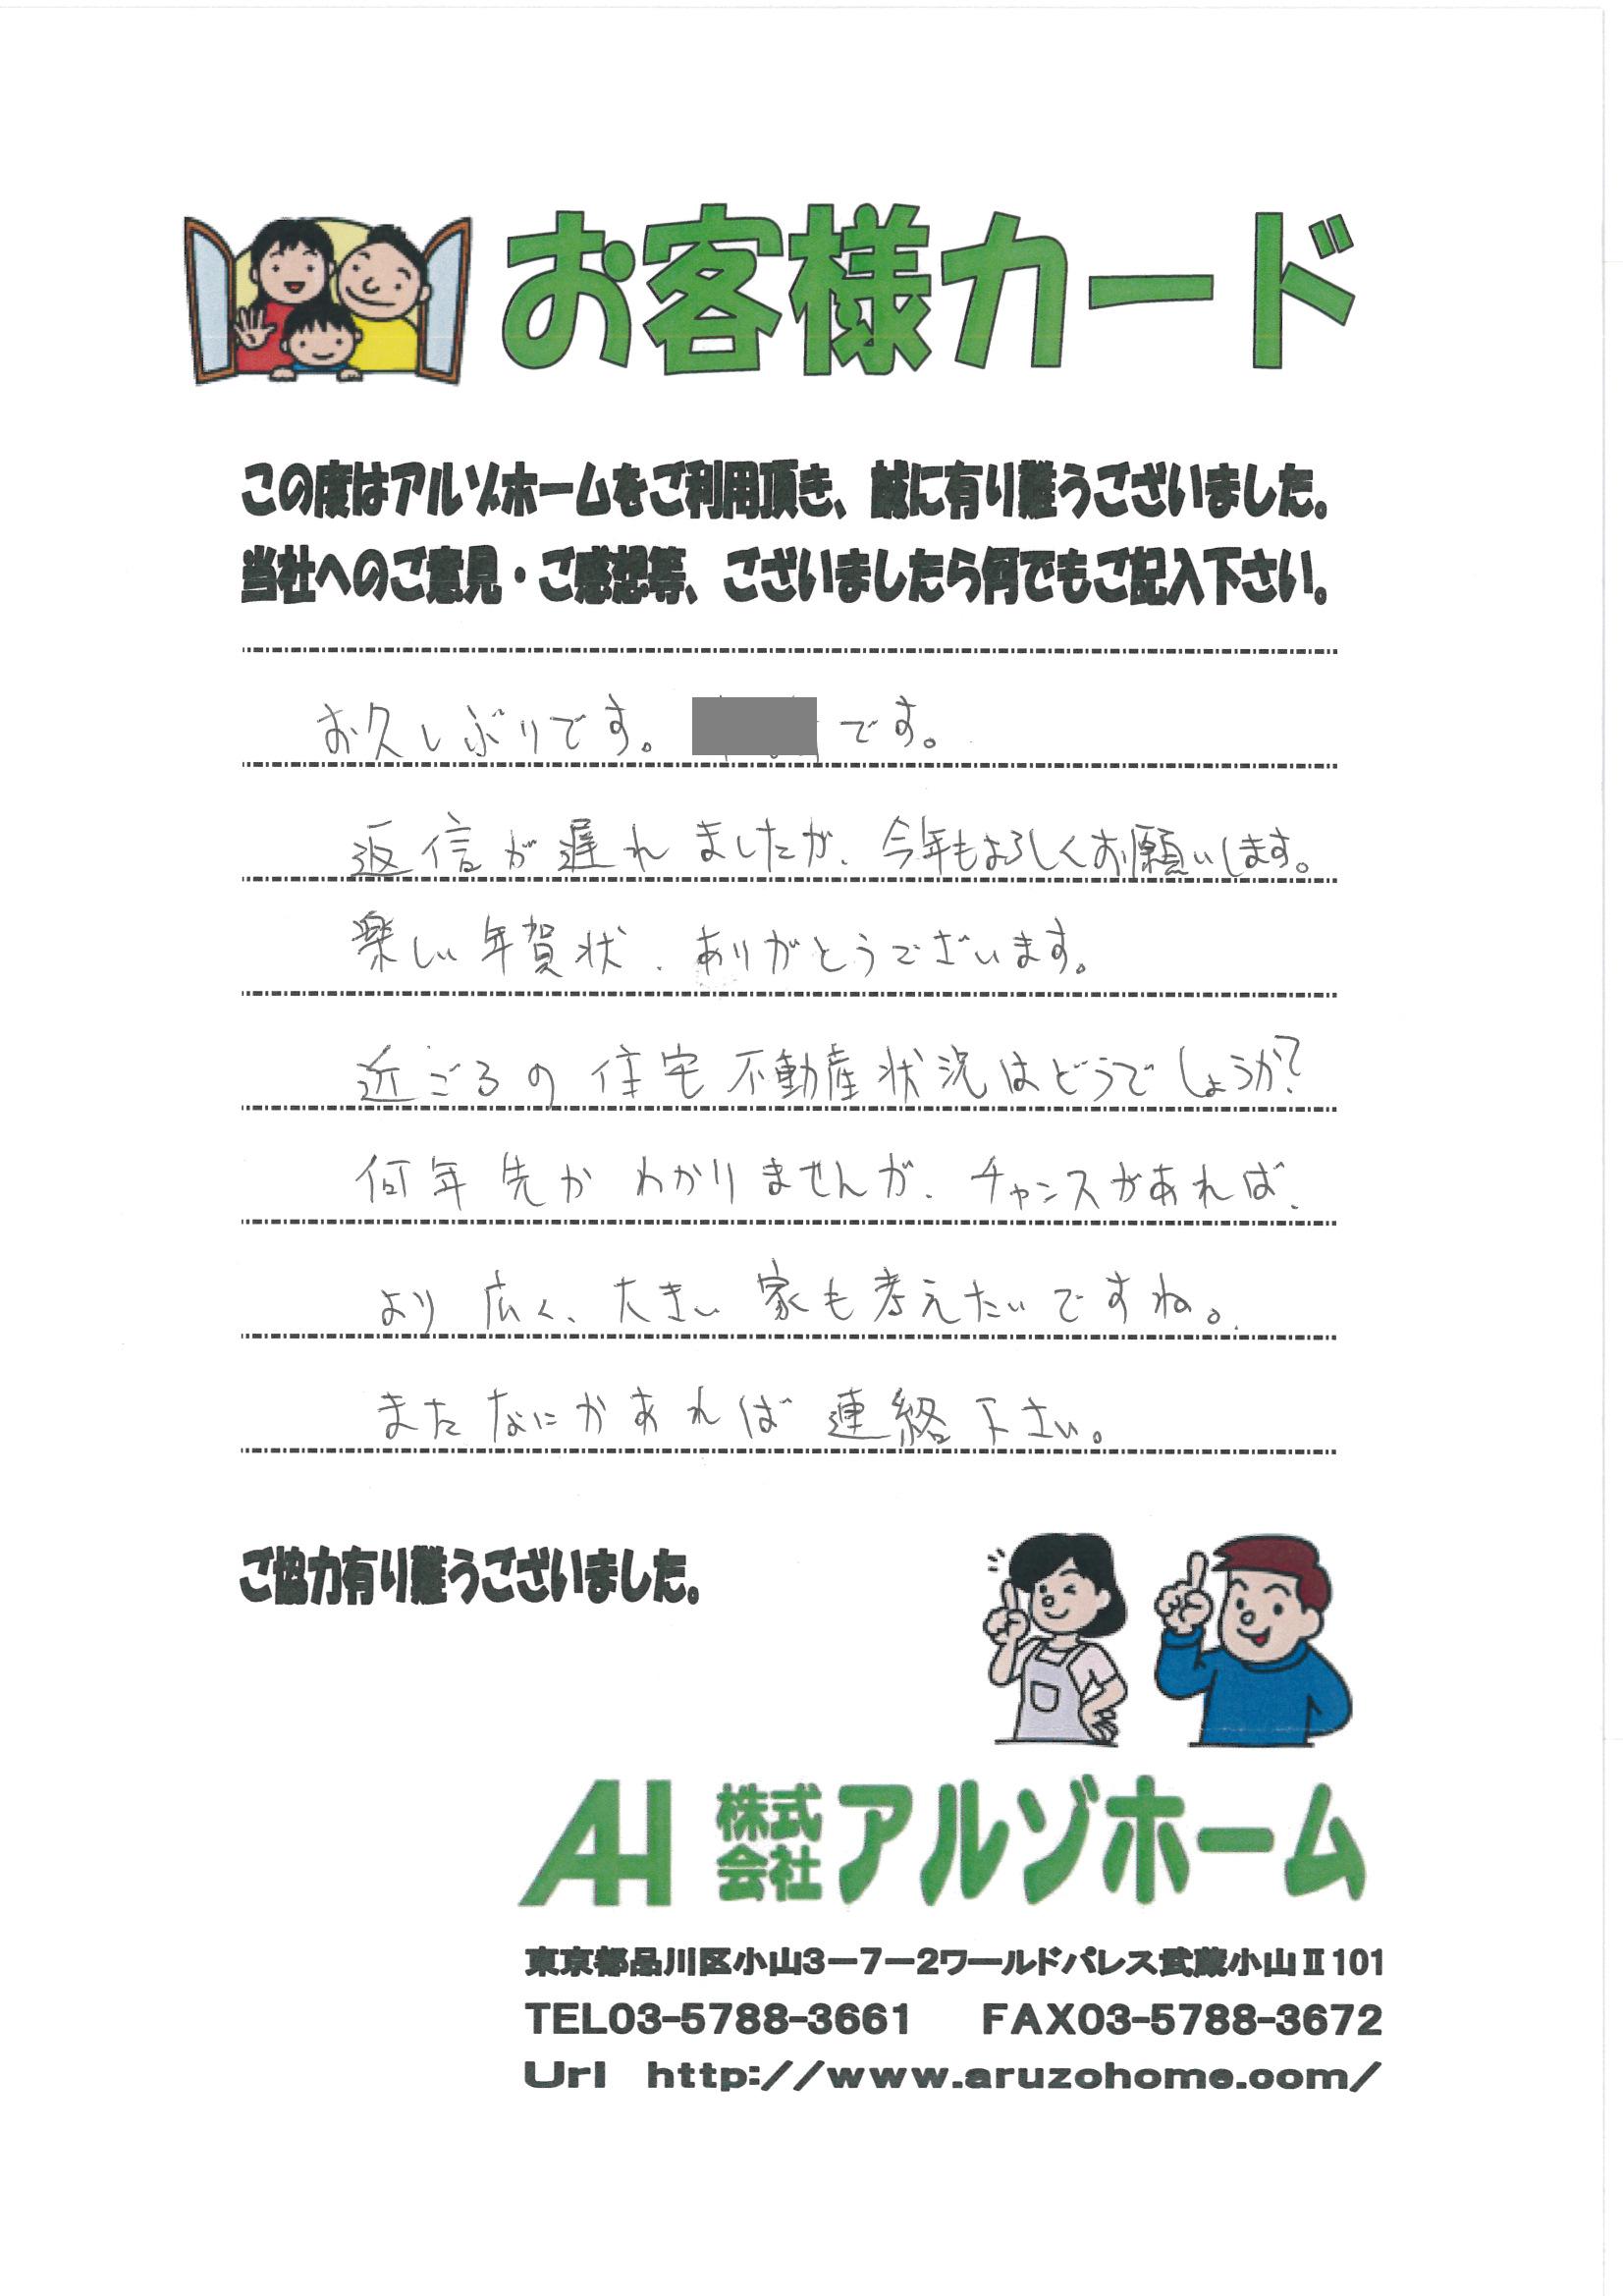 お客様カード
この度はアルゾホームをご利用頂き、誠に有り難うございました。
当社へのご意見・ご感想等、ございましたら何でもご記入下さい。
お久しぶりです。 です。
返信が遅れましたが、今年もよろしくお願いします。
楽しい年賀状、ありがとうございます。
近ごろの住宅不動産状況はどうでしょうか?
何年先かわかりませんが、チャンスがあれば、
より広く、大きい家も考えたいですね。
またなにかあれば連絡下さい。
ご協力有り難うございました。
AH 株式会社アルゾホーム
東京都品川区小山3-7-2ワールドパレス武蔵小山Ⅱ101
TEL03-5788-3661 FAX03-5788-3672
Url http://www.aruzohome.com/